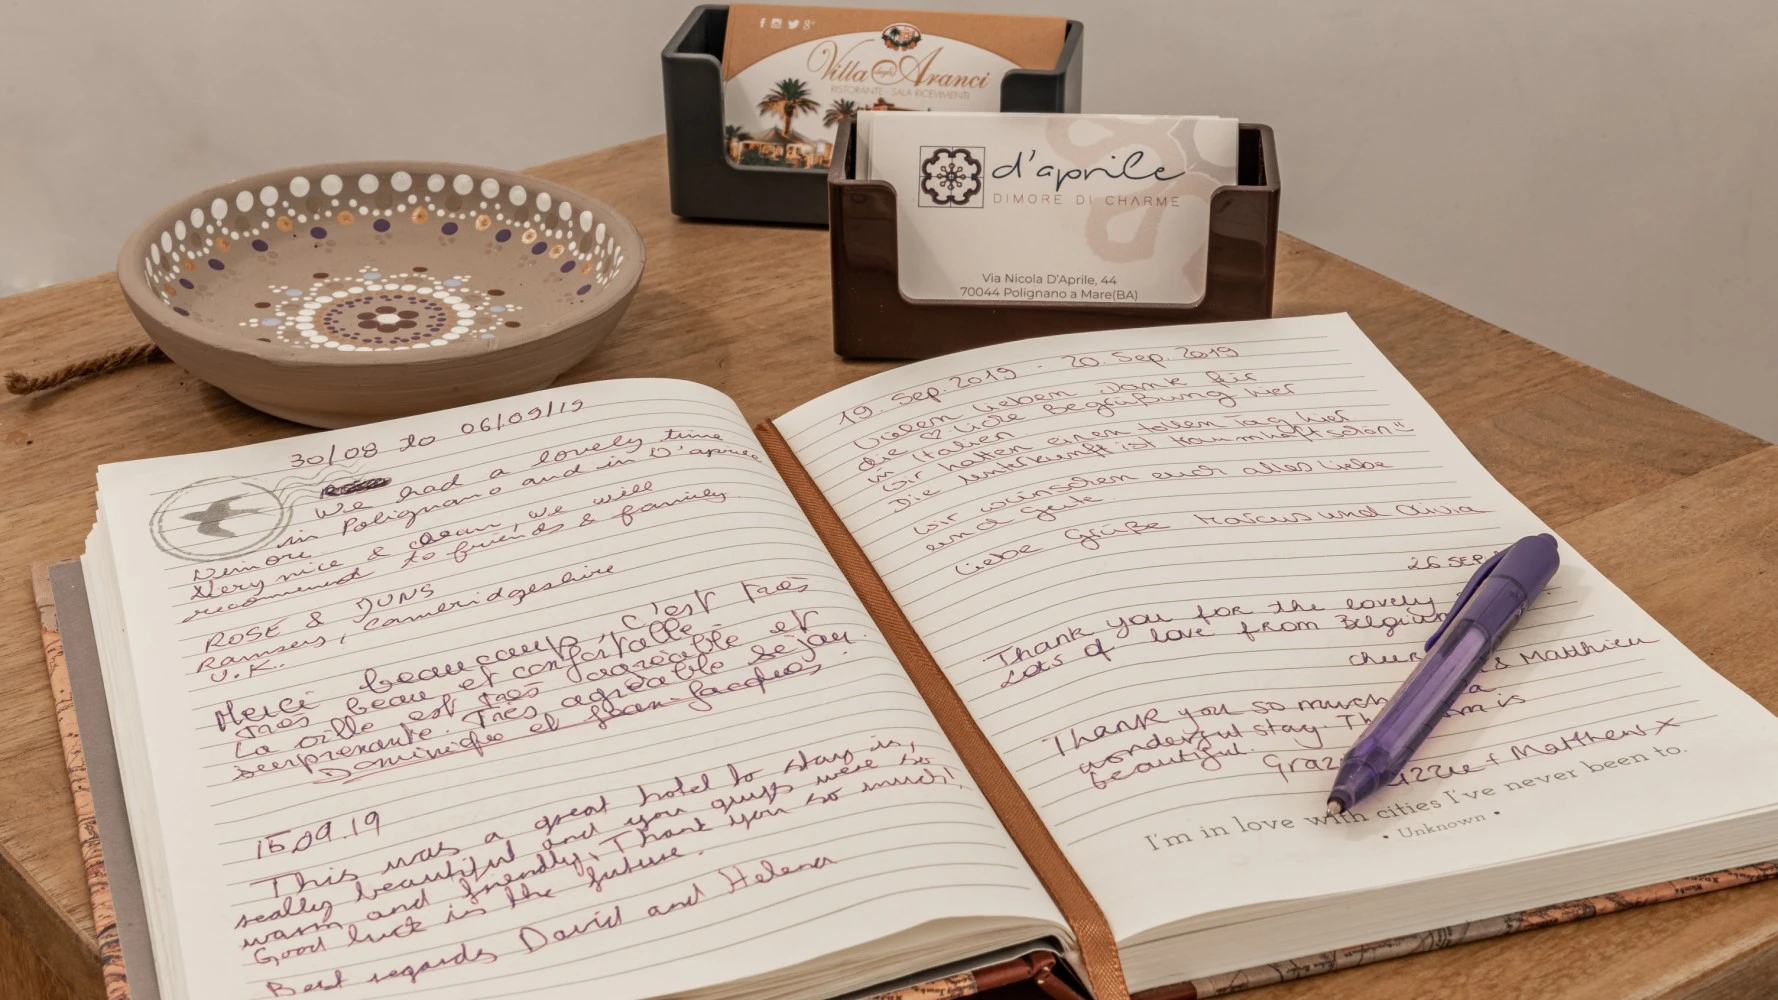 Villa degli Aranci
RISTORANTE - SALA RICEVIMENTI
d'aprile
DIMORE DI CHARME
Via Nicola D'Aprile, 44
70044 Polignano a Mare(BA)
30/08 to 06/09/19
We had a lovely time
in Polignano and in D'aprile
Dimore
Very nice & clean, we will
recommend to friends & family
ROSE &
Ramsey, Cambridgeshire
U.K.
Merci beaucoup, c'est très
très beau et confortable.
La ville est très agréable et
surprenante. Très agréable séjour.
Dominique et Jean-Jacques
15.09.19
This was a great hotel to stay in,
really beautiful and you guys were so
warm and friendly. Thank you so much!
Good luck in the future.
Best regards David and Helena
19. Sep. 2019 - 20. Sep. 2019
Vielen lieben Dank für
die ♡ liche Begrüßung hier
in Italien
Wir hatten einen tollen Tag hier
Die Unterkunft ist traumhaft schön!!
Wir wünschen euch alles Liebe
und Gute
Liebe Grüße Marcus und Olivia
26 SEP
Thank you for the lovely
Lots of love from Belgium
& Matthieu
Thank you so much
wonderful stay. is
beautiful.
+ Matthew x
I'm in love with cities I've never been to.
• Unknown •